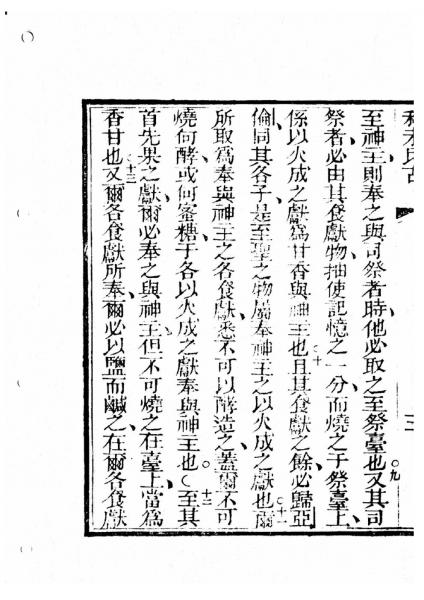 至神主則奉之與司祭者時他必取之至祭臺也又其司
祭者必由其食獻物抽使記憶之一分而燒之于祭臺上
係以火成之獻為甘香與神主也且其食獻之餘必歸亞
倫同其各子是至聖之物屬奉神主之以火成之獻也爾
所取為奉與神主之各食獻悉不可以酵造之蓋爾不可
燒何酵或何蜜糖于各以火成之獻奉與神主也至其
首先果之獻爾必奉之與神主但不可燒之在臺上當為
香甘也又爾各食獻所奉爾必以鹽而鹹之在爾各食獻
三
九
十
十一
十二
十三